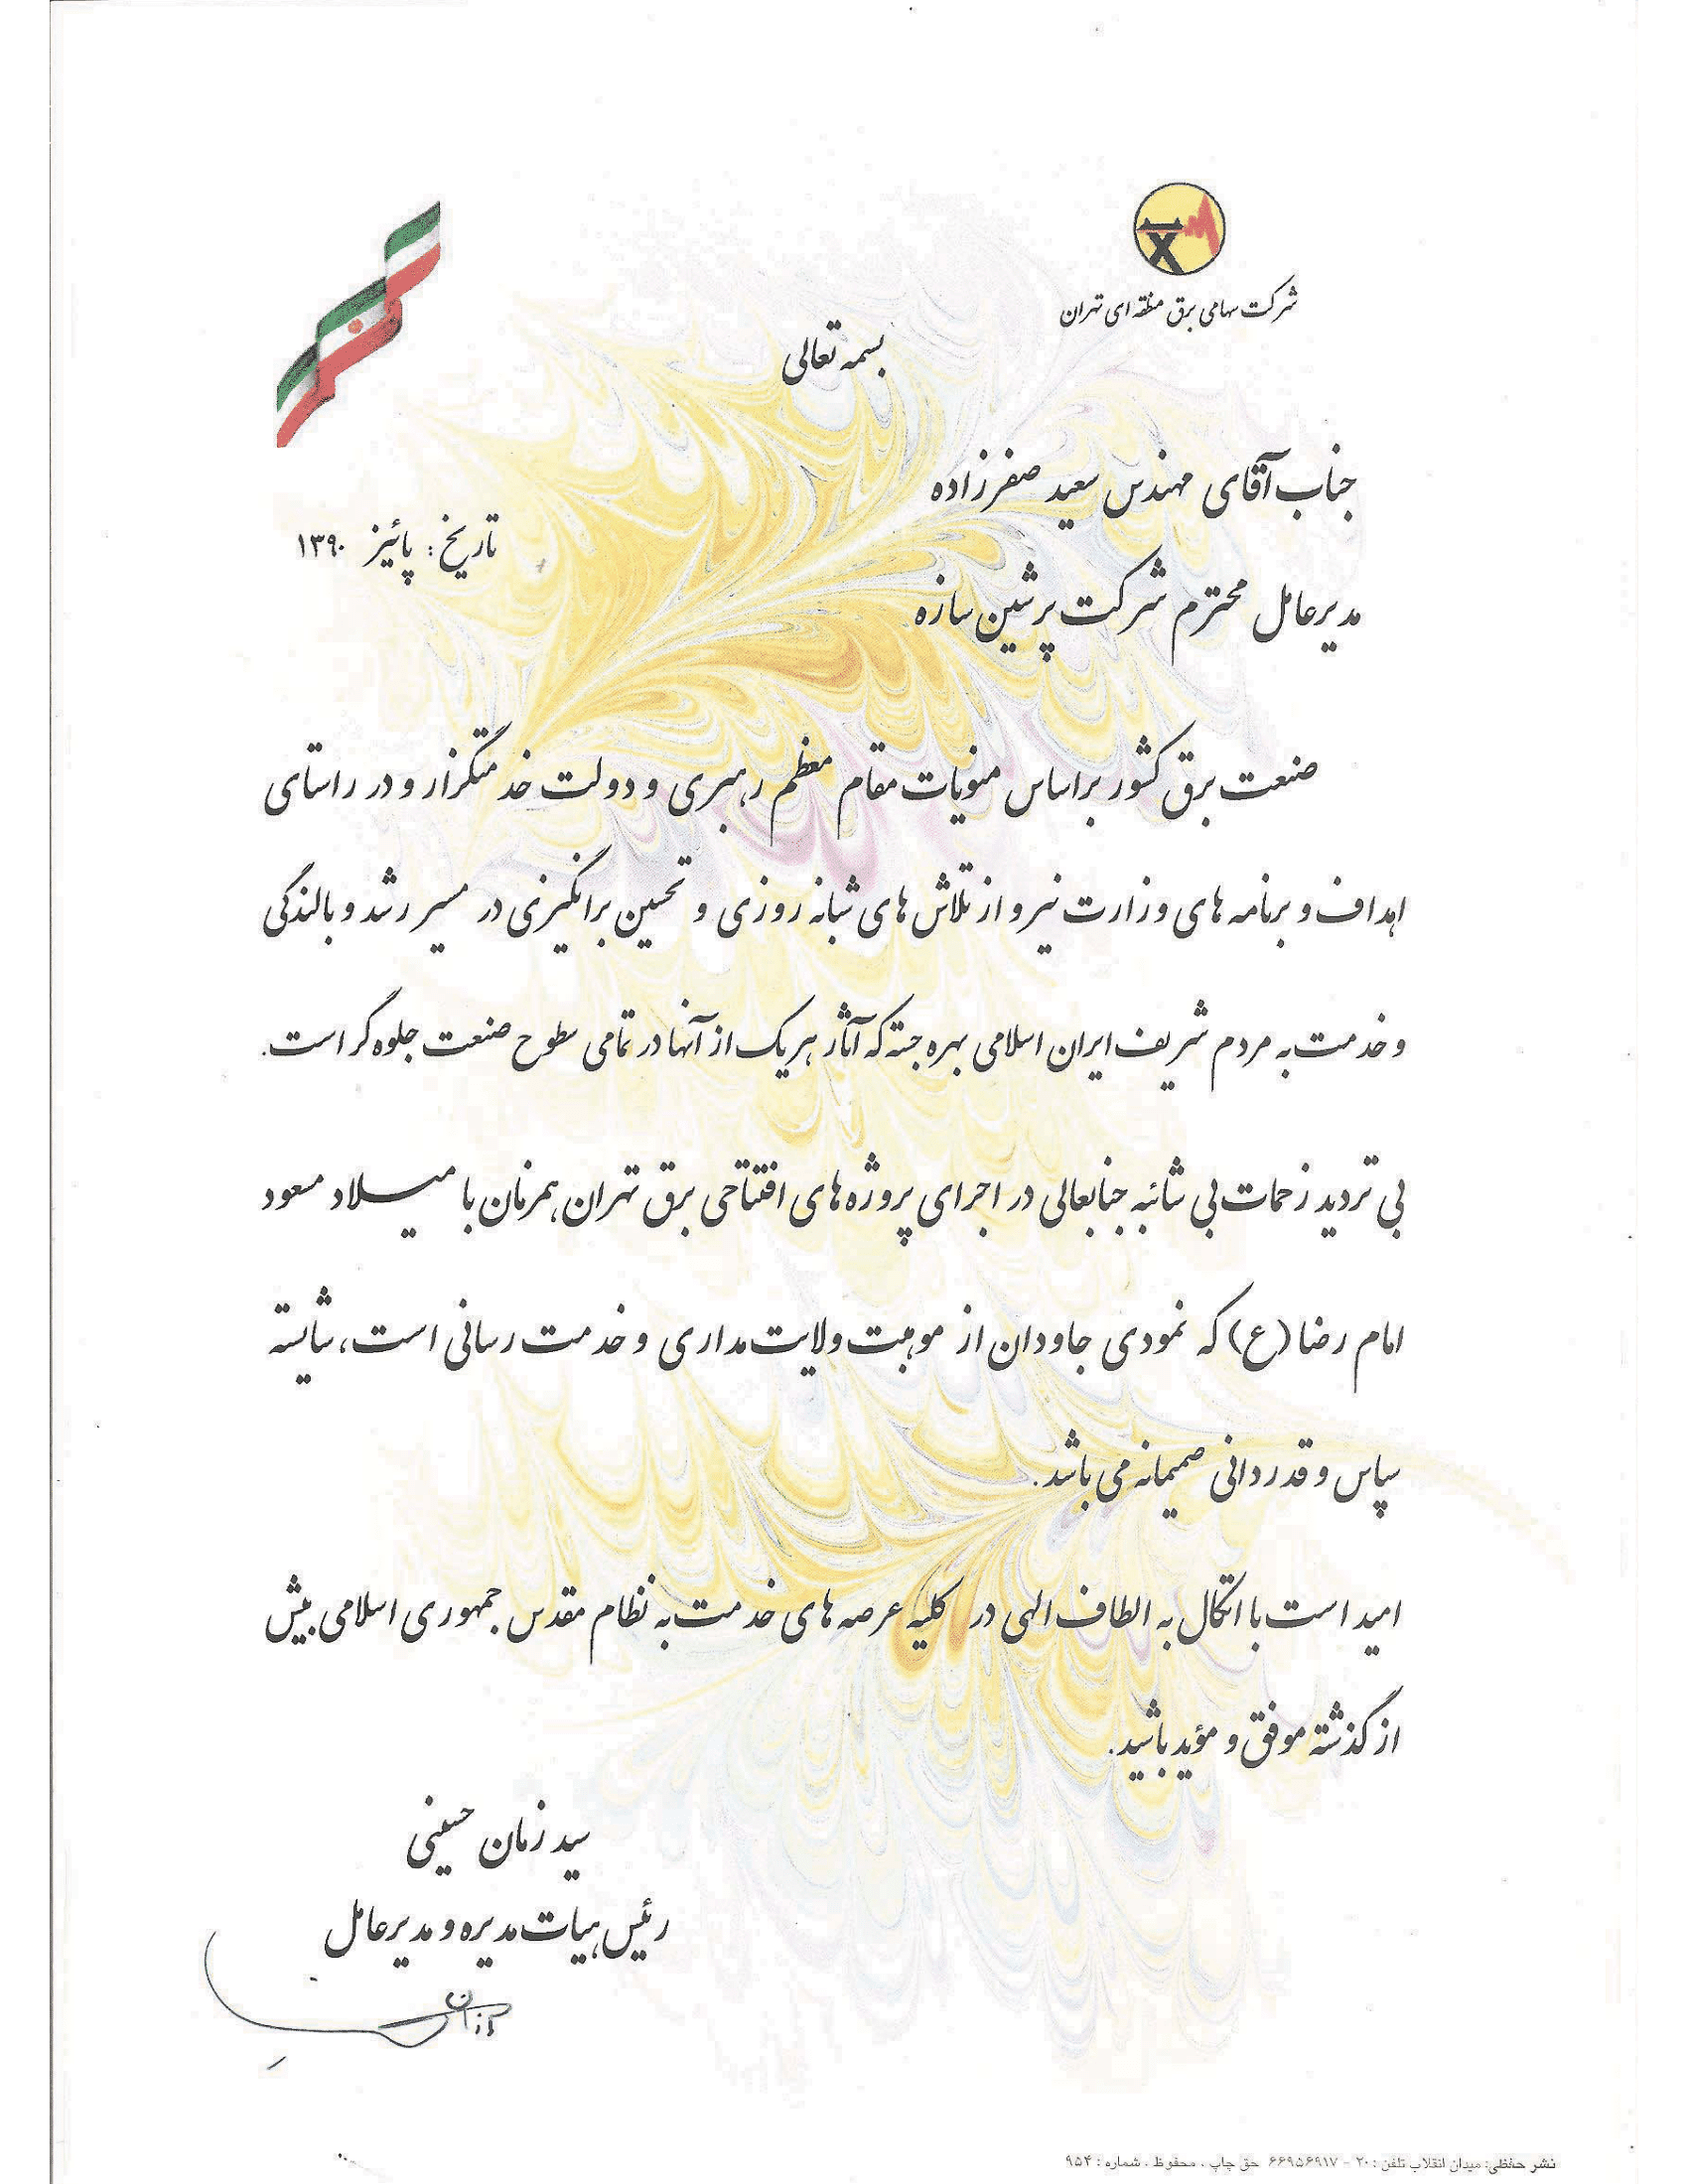 شرکت سهامی برق منطقه ای تهران
بسمه تعالی
جناب آقای مهندس سعید صفرزاده
تاریخ: پائیز ۱۳۹۰
مدیرعامل محترم شرکت پرشین سازه
صنعت برق کشور براساس منویات مقام معظم رهبری و دولت خدمتگزار و در راستای
اهداف و برنامه های وزارت نیرو از تلاش های شبانه روزی و تحسین برانگیزی در مسیر رشد و بالندگی
و خدمت به مردم شریف ایران اسلامی بهره جسته که آثار هریک از آنها در تمامی سطوح صنعت جلوه گر است.
بی تردید زحمات بی شائبه جنابعالی در اجرای پروژه های افتتاحی برق تهران همزمان با میلاد مسعود
امام رضا (ع) که نمودی جاودان از موهبت ولایت مداری و خدمت رسانی است، شایسته
سپاس و قدردانی صمیمانه می باشد.
امید است با اتکال به الطاف الهی در کلیه عرصه های خدمت به نظام مقدس جمهوری اسلامی بیش
از گذشته موفق و مؤید باشید.
سید زمان حسینی
رئیس هیات مدیره و مدیرعامل
نشر حفظی: میدان انقلاب تلفن: ۲۰ - ۶۶۹۵۶۹۱۷ حق چاپ، محفوظ، شماره: ۹۵۴